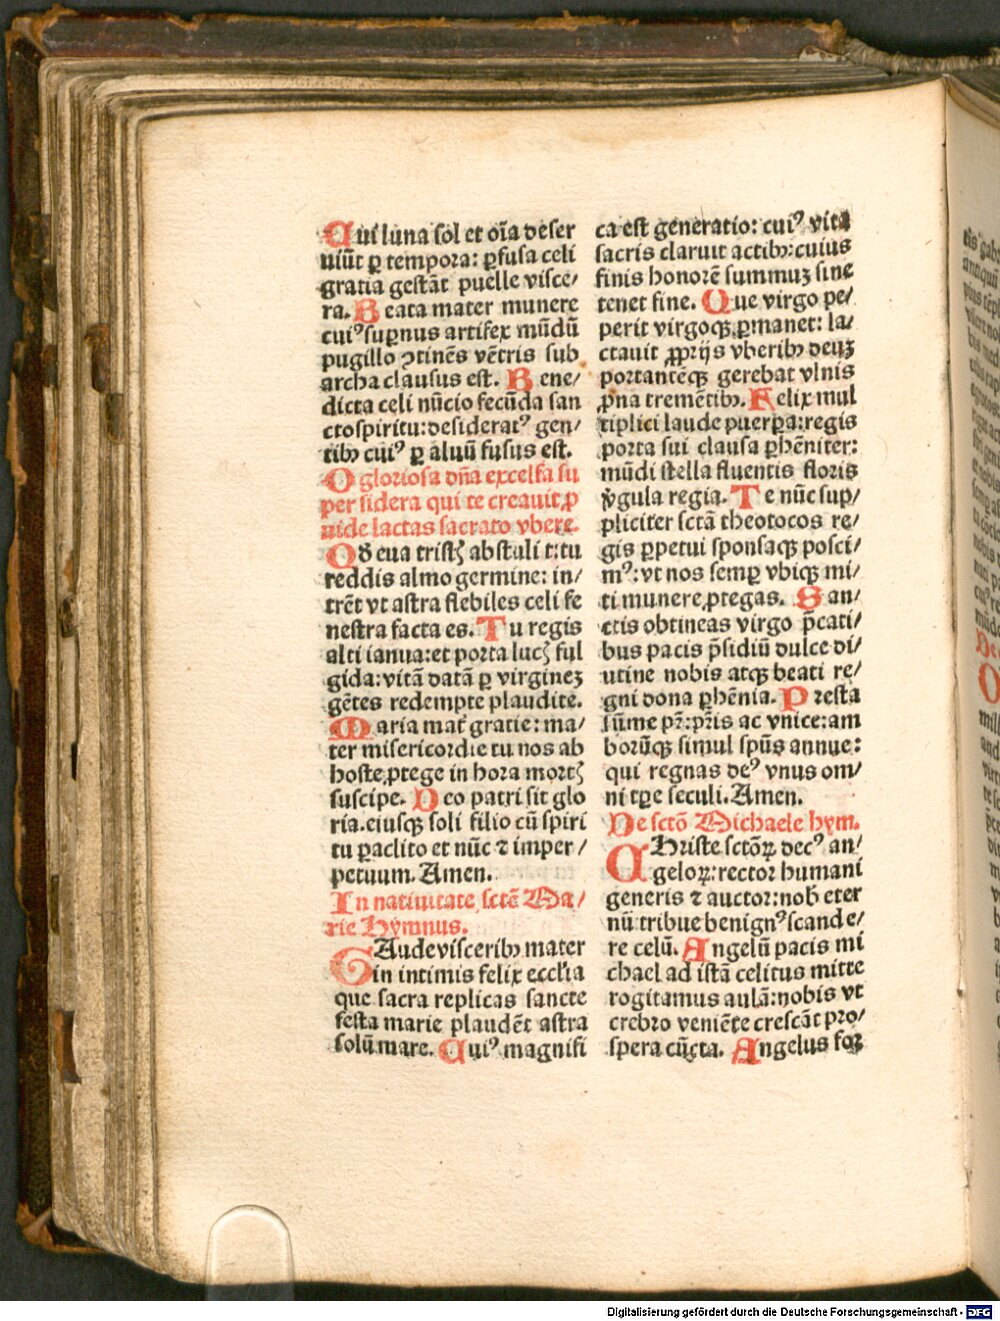 Cui luna sol et oīa deser
uiūt ꝑ tempora: ꝑfusa celi
gratia gestāt puelle visce/
ra. Beata mater munere
cuiꝰ suꝑnus artifex mūdū
pugillo ↄtinēs vētris sub
archa clausus est. Bene/
dicta celi nūcio fecūda san
cto spiritu: desideratꝰ gen/
tibꝫ cuiꝰ ꝑ aluū fusus est.
O gloriosa dn̄a excelsa su
per sidera qui te creauit ꝓ
uide lactas sacrato vbere.
Qđ eua tristꝭ abstuli t: tu
reddis almo germine: in/
trēt vt astra flebiles celi fe
nestra facta es. Tu regis
alti ianua: et porta lucꝭ ful
gida: vitā datā ꝑ virgineꝫ
gētes redempte plaudite.
Maria mat̄ gratie: ma/
ter misericordie tu nos ab
hoste ꝓtege in hora mortꝭ
suscipe. Deo patri sit glo
ria. eiusqꝫ soli filio cū spiri
tu ꝑaclito et nūc ⁊ imper/
petuum. Amen.
In natiuitate sctē Ma/
rie Hymnus.
GAude visceribꝫ mater
in intimis felix eccl'ia
que sacra replicas sancte
festa marie plaudēt astra
solū mare. Cuiꝰ magnifi
ca est generatio: cuiꝰ vita
sacris claruit actibꝫ: cuius
finis honorē summuꝫ sine
tenet fine. Que virgo pe/
perit virgoqꝫ ꝑmanet: la/
ctauit ꝓprijs vberibꝫ deuꝫ
portantēqꝫ gerebat vlnis
ꝓna tremētibꝫ. Felix mul
tiplici laude puerꝑa: regis
porta sui clausa ꝑhēniter:
mūdi stella fluentis floris
v̄gula regia. Te nūc sup/
pliciter sctā theotocos re/
gis ꝑpetui sponsaqꝫ posci/
mꝰ: vt nos semꝑ vbiqꝫ mi/
ti munere ꝓtegas. San/
ctis obtineas virgo p̄cati/
bus pacis p̄sidiū dulce di/
utine nobis atqꝫ beati re/
gni dona ꝑhēnia. Presta
sūme pr̄: pr̄is ac vnice: am
borūqꝫ simul spūs annue:
qui regnas deꝰ vnus om/
ni tꝑe seculi. Amen.
De sctō Michaele hym.
CHriste sctōꝝ decꝰ an/
geloꝝ: rector humani
generis ⁊ auctor: nob̄ eter
nū tribue benignꝰ scande/
re celū. Angelū pacis mi
chael ad istā celitus mitte
rogitamus aulā: nobis vt
crebro veniēte crescāt pro/
spera cūcta. Angelus for